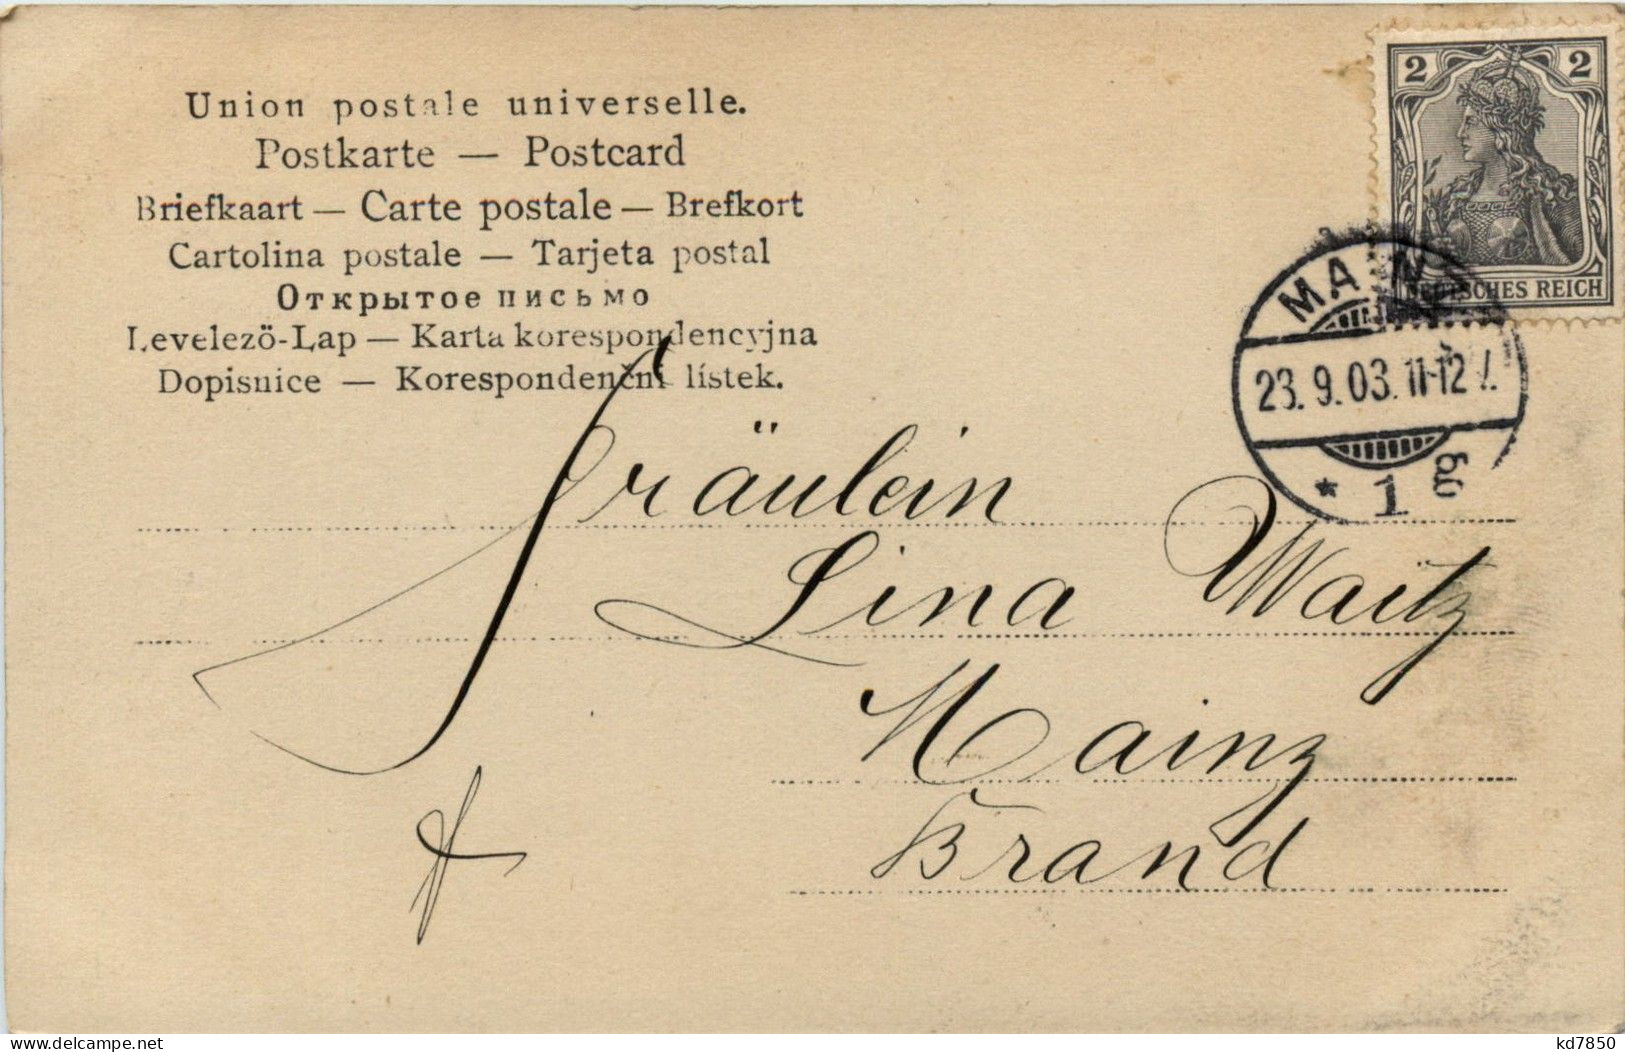 Union postale universelle.
Postkarte — Postcard
Briefkaart — Carte postale — Brefkort
Cartolina postale — Tarjeta postal
Открытое письмо
Levelező-Lap — Karta korespondencyjna
Dopisnice — Korespondenční lístek.
2 2
DEUTSCHES REICH
MAINZ
23.9.03. 11-12
* 1
Fräulein
Lina Waitz
Mainz
Brand
kd7850